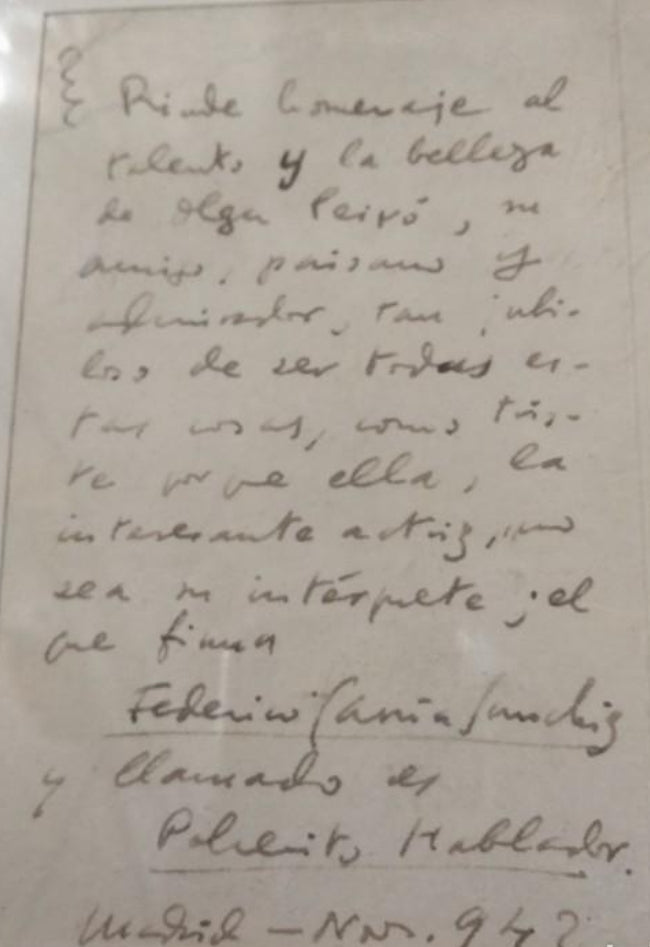 Rinde homenaje al
talento y la belleza
de Olga Peiró, su
amigo, paisano y
admirador, tan jubi-
loso de ser todas es-
tas cosas, como tris-
te porque ella, la
interesante actriz, no
sea su intérprete; el
que firma
Federico García Sanchiz
y llamado
Hablador.
Madrid - Nov. 942